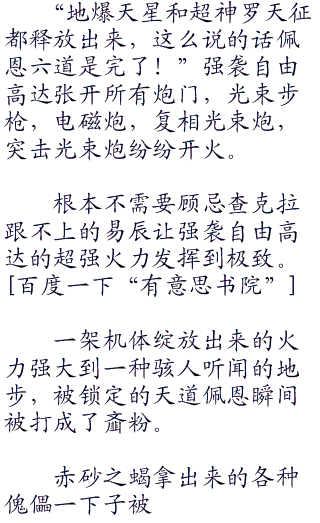 “地爆天星和超神罗天征
都释放出来，这么说的话佩
恩六道是完了！”强袭自由
高达张开所有炮门，光束步
枪，电磁炮，复相光束炮，
突击光束炮纷纷开火。
根本不需要顾忌查克拉
跟不上的易辰让强袭自由高
达的超强火力发挥到极致。
[百度一下“有意思书院”]
一架机体绽放出来的火
力强大到一种骇人听闻的地
步，被锁定的天道佩恩瞬间
被打成了齑粉。
赤砂之蝎拿出来的各种
傀儡一下子被